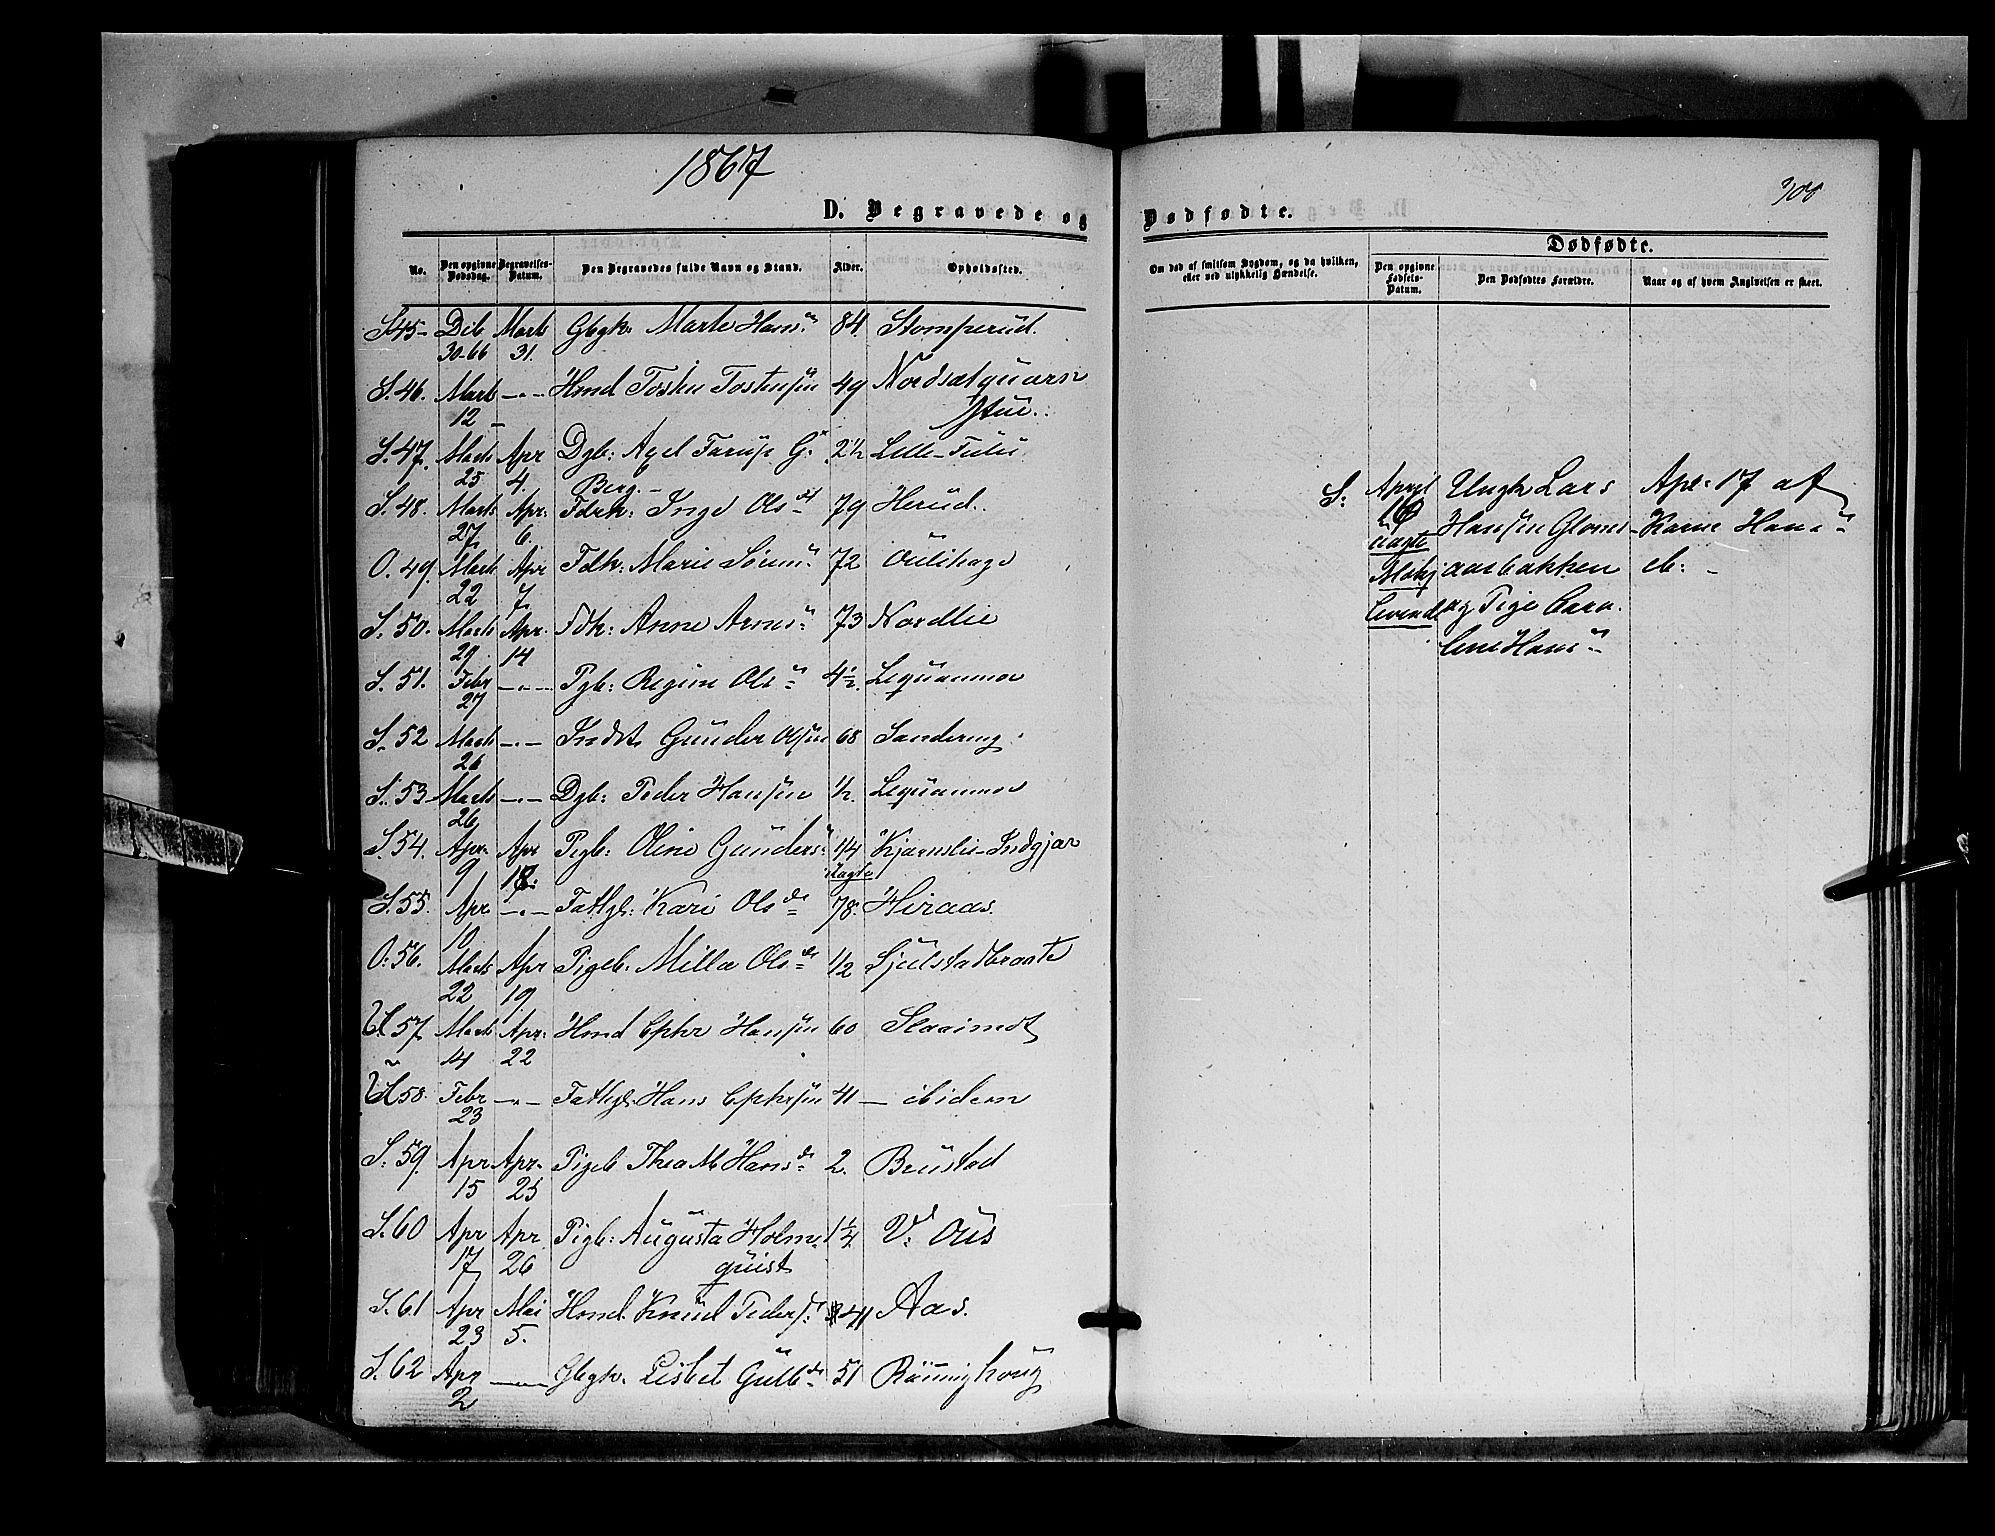 1867
300
D. Begravede og Dødfødte.
Dødfødte.
No. Den opgivne Dødsdag. Begravelses-Datum. Den Begravedes fulde Navn og Stand. Alder. Opholdssted.
Om død af smitsom Sygdom, og da hvilken, eller ved ulykkelig Hændelse. Den opgivne Fødsels-Datum. Den Dødfødtes Forældre. Naar og af hvem Angivelsen er skeet.
S. 45 - Deb Marts Gbgk: Marte Hans 84 Stomperud.
30-66 31.
S. 46. Marts -"- Hmd Tosten Tostensen 49
12 - Stue.
S. 47. Marts Apr Dgb: Axel Farup G. 2½ Lille-Fulu
25 4. Berg.
S. 48. Marts Apr. Fdrk: Inge Ols dt 79 Herud.
27 6.
O. 49. Marts Apr Fdk: Marie 72
22 7.
S. 50. Marts Apr. Fdk: Anne Arnes 73 Nordlie
29 14
S. 51. Febr -"- Pgb: Regine Ols 4½
27
S. 52 Marts -"- Gunder Olsen 68 Sandereng
26
S. 53 Marts -"- Dgb: Peder Hansen ½
26
S. 54. Apr. Apr Pigb: Oline Gunders 1/4 Kjærnslie-Indgjær
9 18. uagte
S. 55. Apr. -"- Fattgl: Kari Ols d. 78. Hiraas.
10
O. 56. Marts Apr Pigeb: Milla Ols d. ½ Sjulstadbraate
22 19
57 Marts Apr: Hmd Hansen 60
14 22
58. Febr -"- Fattgl: Hans 41 - ibidem
23
S. 59. Apr Apr. Pigeb Thea M Hans d. 2. Benstad
15 25
S. 60 Apr Apr. Pigb: Augusta Holm- 1¼ V. Aus
17 26 quist
S. 61 Apr Mai Hmd. Knud Peders. 41 Aas.
23 5.
S. 62 Apr -"- Gbgk. Lisbet Gulb d. 51
2
S: April Ungk Lars Apr: 17 af
16 Hansen Gloms- Karen Hans
uagte aasbakken eb: -
og Pige Caro-
line Hans